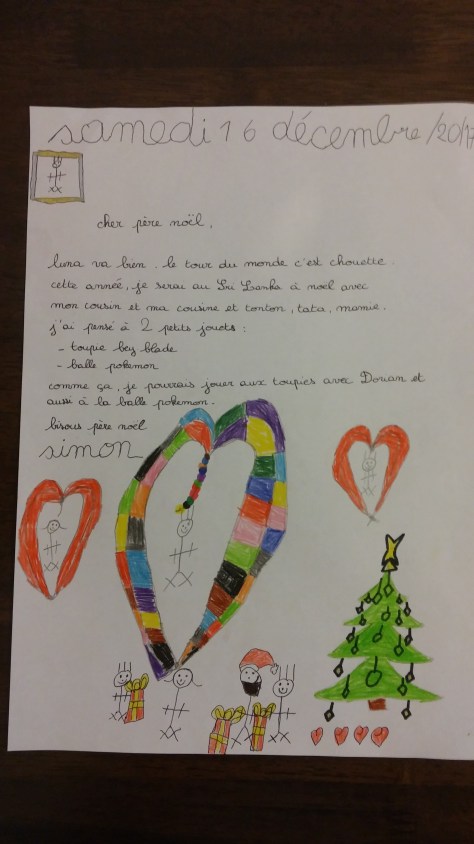 samedi 16 décembre/2017
cher père noël,
luna va bien. le tour du monde c'est chouette.
cette année, je serai au Sri Lanka à noel avec
mon cousin et ma cousine et tonton, tata, mamie.
j'ai pensé à 2 petits jouets :
- toupie bey blade
- balle pokemon
comme ça, je pourrais jouer aux toupies avec Dorian et
aussi à la balle pokemon.
bisous père noel
simon